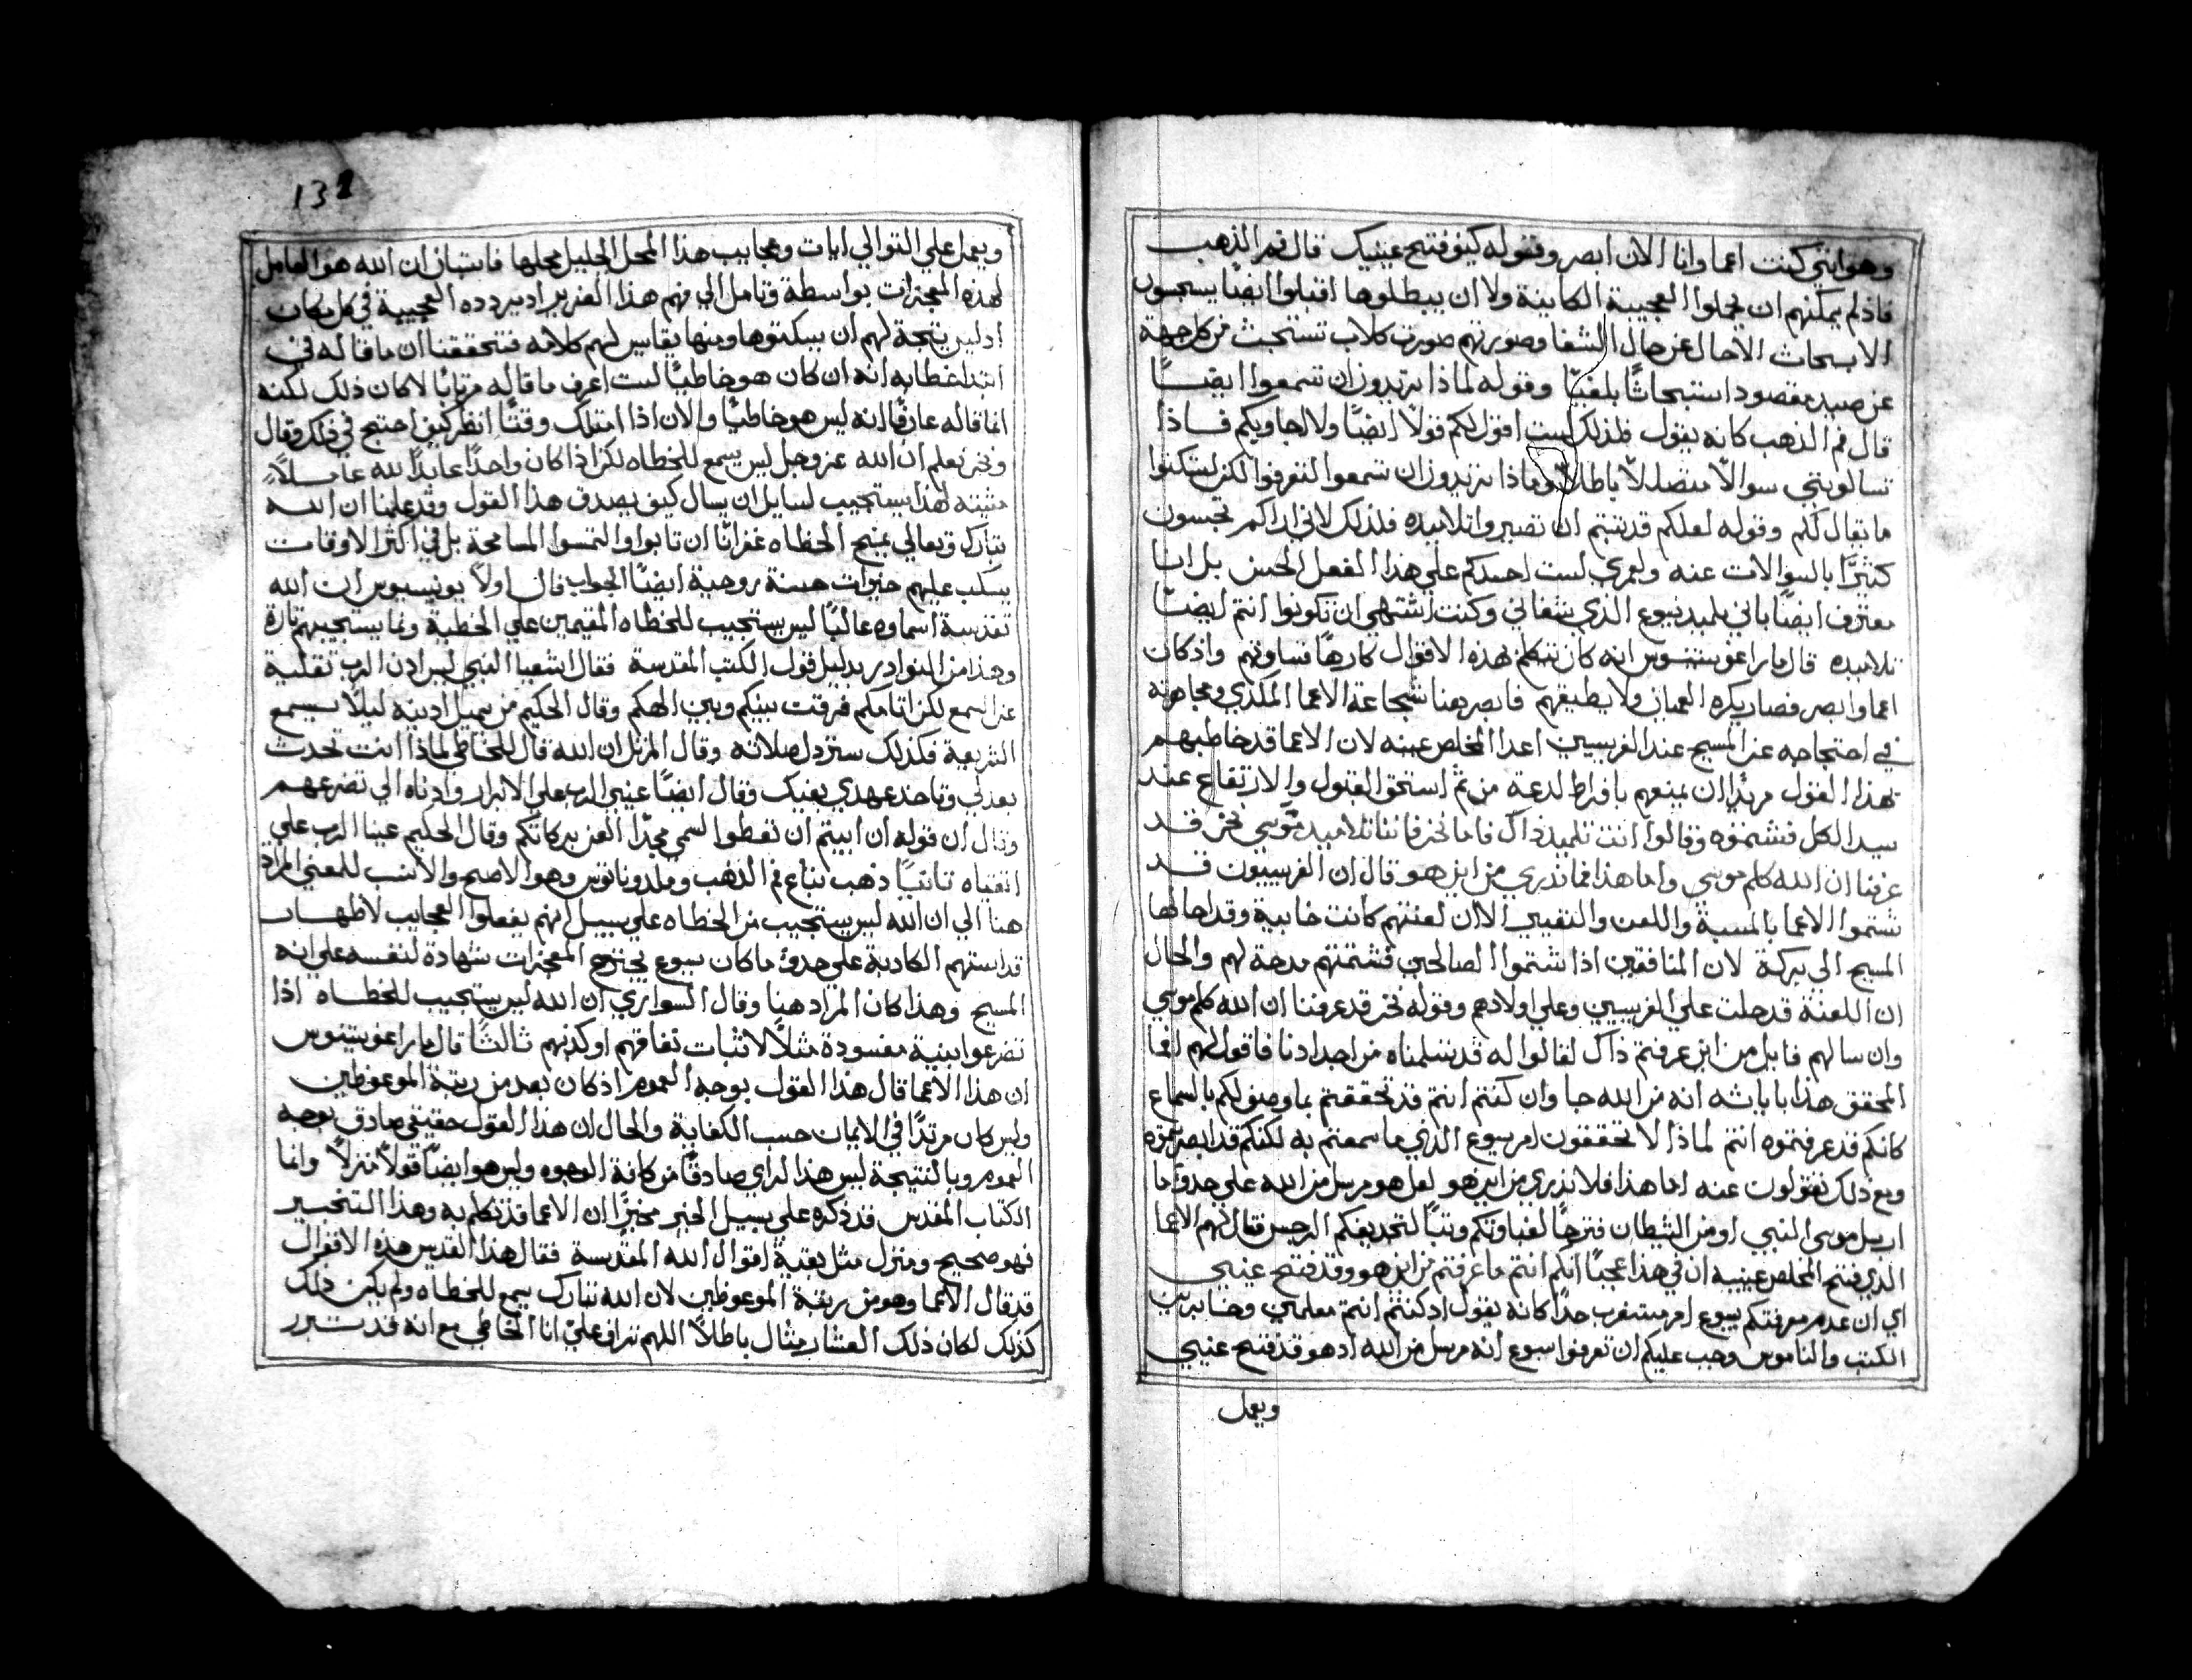 وهو اني كنت اعما وانا الان ابصر وقوله كيف فتح عينيك قال فم الذهب
فاذ لم يمكنهم ان يحملوا العجيبة الكاينة ولا ان يبطلوها اقبلوا ايضًا يسجسون
الابحاث الاحال عن حال الشفا وصورتهم صورت كلاب تستبحث من كل جهة
عن صيد مقصود استبحاثًا بلغيًا وقوله لماذا تريدون ان تسمعوا ايضًا
قال فم الذهب كانه يقول فلذلك لست اقول لكم قولًا ايضًا ولا اجاوبكم فاذا
تسالونني سوالًا متصلًا باطلًا وماذا تريدون ان تسمعوا لتعرفوا لكن لتشتكوا
ما يقال لكم وقوله لعلكم قد شيتم ان تصيروا تلاميده فلذلك لاني اراكم تحبسون
كثيرًا بالسوالات عنه ولعمري لست احسدكم علي هذا الفعل الحسن بل انا
معترف ايضًا باني تلميد يسوع الذي شفاني وكنت اشتهي ان تكونوا انتم ايضًا
تلاميده قال مار اغوستنوس انه كان يتكلم بهذه الاقوال كارهًا قساوتهم واذ كان
اعما وابصر فصار يكره العميان ولا يطيقهم فابصر هنا شجاعة الاعما المكدي ومجاهرته
في احتجاجه عن المسيح عند الفريسيين اعدا المخلص عينه لان الاعما قد خاطبهم
بهذا القول مريدًا ان يمنعهم بافراط لدعة من ثم استحق القبول والارتفاع عند
سيد الكل فشتموه وقالوا انت تلميد ذاك فاما نحن فاننا تلاميد موسي نحن قد
عرفنا ان الله كلم موسي واما هذا فما ندري من اين هو قال ان الفريسيون قد
شتموا الاعما بالمسبة واللعن والتعيير الا ان لعنتهم كانت خايبة وقد احالها
المسيح الي بركة لان المنافقين اذا شتموا الصالحين فشتمتهم مدحة لهم والحال
ان اللعنة قد حلت علي الفريسيين وعلي اولادهم وقوله نحن قد عرفنا ان الله كلم موسي
وان سالهم قايل من اين عرفتم ذاك لقالوا له قد تسلمناه من اجدادنا فاقول لهم افما
المحقق هذا باياته انه من الله جا وان كنتم انتم قد تحققتم بما وصف لكم بالسماع
كانكم قد عرفتموه انتم لماذا لا تحققون امر يسوع الذي ما سمعتم به لكنكم قد ابصرتموه
ومع ذلك تقولون عنه اما هذا فلا ندري من اين هو لعل هو مرسل من الله علي حدو ما
ارسل موسي النبي او من الشيطان فترحًا لغباوتكم وتبًا لتجديفكم الرجس فقال لهم الاعما
الذي فتح المخلص عينيه ان في هذا عجبًا انكم انتم ما عرفتم من اين هو وقد فتح عيني
اي ان عدم معرفتكم بيسوع امر مستغرب جدًا كانه يقول اد كنتم انتم معلمين وخابرين
الكتب والناموس وجب عليكم ان تعرفوا يسوع انه مرسل من الله اد هو قد فتح عيني
ويعمل
132
ويعمل علي التوالي ايات وعجايب هذا المحل الجليل محلها فاستبان ان الله هو العامل
لهذه المعجزات بواسطة وتامل الي فهم هذا الضرير اد يردده العجيبة في كل مكان
اد ليس يتجه لهم ان يبكتوها ومنها يقايس لهم كلامه فتحققنا ان ما قاله في
ابتدا خطابه انه ان كان هو خاطيًا لست اعرف ما قاله مرتابًا لا كان ذلك لكنه
انما قاله عارفًا انه ليس هو خاطيًا والان اذا امتلك وقتًا انظر كيف احتج في ذلك وقال
ونحن نعلم ان الله عز وجل ليس يسمع للخطاه لكن اذا كان واحدًا عابدًا لله عاملًا
مشيته لهذا يستجيب لسايل ان يسال كيف يصدق هذا القول وقد علمنا ان الله
تبارك وتعالي يمنح الخطاه غفرانًا ان تابوا والتمسوا المسامحة بل في اكثر الاوقات
يسكب عليهم خيرات حسنة روحية ايضًا الجواب قال اولًا يونسيوس ان الله
تقدست اسماوه غالبًا ليس يستجيب للخطاه المقيمين علي الخطية وانما يستجيبهم تارة
وهذا من النوادر بدليل قول الكتب المقدسة فقال اشعيا النبي ليس ادن الرب تقلية
عن السمع لكن اتامكم فرقت بينكم وبين الهكم وقال الحكيم من يميل ادنيه ليلًا يسمع
الشريعة فكذلك ستردل صلاته وقال المرتل ان الله قال للخاطي لماذا انت تحدث
بعدلي وتاخد عهدي بفيك وقال ايضًا عيني الرب علي الابرار وادناه الي تضرعهم
وقال ان قوله ان ابيتم ان تعطوا لسمي مجدًا العن بركاتكم وقال الحكيم عينا الرب علي
اتقياه ثانيًا ذهب تباع فم الذهب وملدوناتوس وهو الاصح والانسب للمعني المراد
هنا الي ان الله ليس يستجيب من الخطاه علي سبيل انهم يفعلوا العجايب لاظهار
قداستهم الكادبة علي حدو ما كان يسوع يجترح المعجزات شهادة لنفسه علي انه
المسيح وهذا كان المراد هنا وقال السواري ان الله ليس يستجيب للخطاه اذا
تضرعوا بنية مفسودة مثلًا لاثبات نفاقهم او كذبهم ثالثًا قال مار اغوستينوس
ان هذا الاعما قال هذا القول بوجه العموم اد كان بعد من رتبة الموعوظين
وليس كان مرتدًا في الايمان حسب الكفاية والحال ان هذا القول حقيقي صادق بوجه
العموم وبالنتيجة ليس هذا الراي صادقًا من كافة الوجوه وليس هو ايضًا قولًا منزلًا وانما
الكتاب المقدس قد ذكره علي سبيل الخبر مخبرًا ان الاعما قد تكلم به وهذا التخبير
فهو صحيح ومنزل مثل بقية اقوال الله المقدسة فقال هذا القديس هذه الاقوال
قد قال الاعما وهو من ربقة الموعوظين لان الله تبارك يسمع للخطاه ولم يكن ذلك
كذلك لكان ذلك العشار مثال باطلًا اللهم تراف علي انا الخاطي مع انه قد تبرر